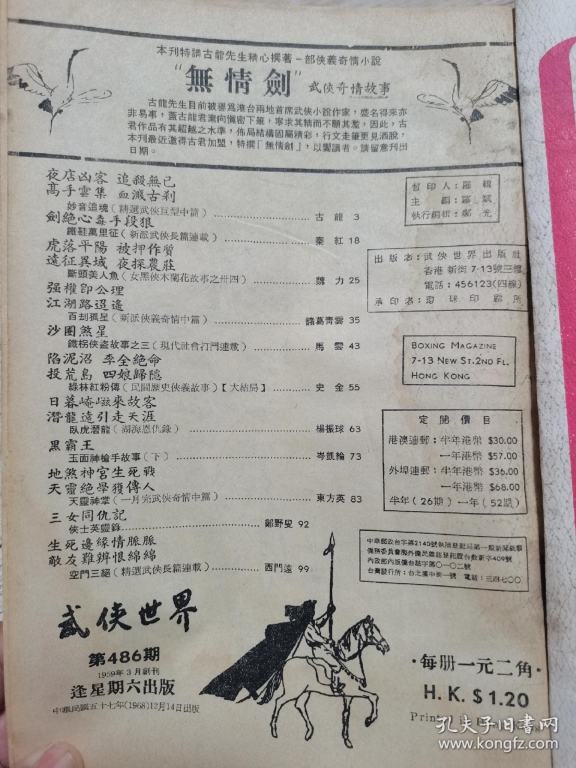 本刊特請古龍先生精心撰著一部俠義奇情小說
“無情劍”武俠奇情故事
古龍先生目前被譽爲港台兩地首席武俠小說作家，盛名得來亦
非易事，蓋古龍君稟向愼密下筆，寧求其精而不願其濫，因此，古
君作品有其超越之水準，佈局結構固屬精彩，行文走筆更見洒脫，
本刊最近邀得古君加盟，特撰「無情劍」，以饗讀者。請留意刊出
日期。
夜店凶客 追殺無已
高手雲集 血濺古刹
妙音追魂（精選武俠巨型中篇）古龍 3
劍絕心毒手段狠
鐵鞋萬里征（新派武俠長篇連載）秦紅 18
虎落平陽 被押作質
遠征異域 夜探農莊
斷頭美人魚（女黑俠木蘭花故事之卅四）魏力 25
强權即公理
江湖路迢遙
百刦孤星（新派俠義奇情中篇）諸葛青雲 35
沙圈煞星
鐵柺俠盜故事之三（現代社會打鬥連載）馬雲 43
陷泥沼 季全絶命
投荒島 四娘歸隱
綠林紅粉傳（民間歷史俠義故事）【大結局】史金 55
日暮崦嵫來故客
潛龍遠引走天涯
臥虎潛龍（湖海恩仇錄）楊振球 63
黑霸王
玉面神槍手故事（下）岑凱倫 73
地煞神宮生死戰
天靈絶學獲傳人
天靈神掌（一月完武俠奇情中篇）東方英 83
三女同仇記
俠士英靈錄 鄭野星 92
生死邊緣情脈脈
敵友難辨恨綿綿
空門三絕（精選武俠長篇連載）西門遠 99
督印人：羅輯
主編：羅斌
執行編輯：鄭光
出版者：武俠世界出版社
香港新街7-13號三樓
電話：456123（四線）
承印者：環球印刷所
BOXING MAGAZINE
7-13 NEW ST. 2ND FL.
HONG KONG
定閱價目
港澳連郵：半年港幣 $30.00
一年港幣 $57.00
外埠連郵：半年港幣 $36.00
一年港幣 $68.00
半年（26期）一年（52期）
中華郵政台字第2145號執照登記爲第一類新聞紙類
僑務委員會海外僑民雜誌登記證台教新字409號
內政部內版僑台誌字第〇一〇二號
台灣發行所：台北漢中街一號 電話：三四七〇〇
武俠世界
第486期
1959年3月創刊
逢星期六出版
中華民國五十七年（1968）12月14日出版
·每册一元二角·
H.K. $1.20
Printed in
孔夫子旧书网
www.kongfz.com